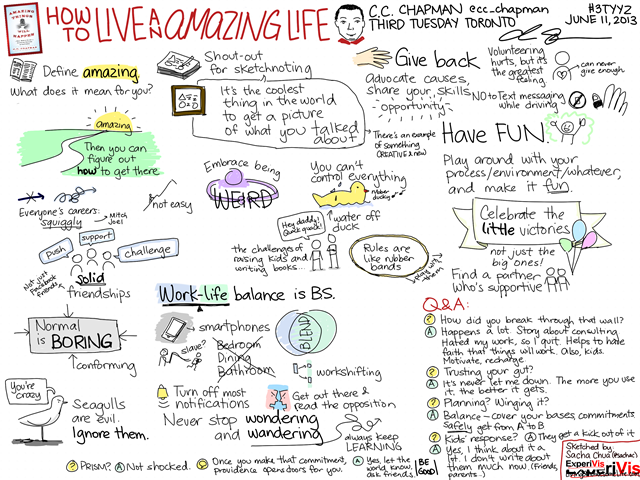 AMAZING THINGS WILL HAPPEN
C.C. CHAPMAN
HOW TO LIVE AN AMAZING LIFE
C.C. CHAPMAN @cc_chapman
THIRD TUESDAY TORONTO
#3TYYZ
JUNE 11, 2013
Define amazing.
What does it mean for you?
amazing
Then you can
figure out
how to get there
Shout-out
for sketchnoting
It's the coolest
thing in the world
to get a picture
of what you talked
about
Give back
advocate causes,
share your skills
opportunity
There's an example
of something
CREATIVE & new
Volunteering
hurts, but it's
the greatest
feeling.
can never
give enough
NO to Text messaging
while driving
Have FUN
Play around with your
process/environment/whatever,
and make it fun.
Everyone's careers:
squiggly
Mitch
Joel
not easy
Embrace being
WEIRD
You can't
control everything
rubber
ducky
water off
duck
Hey daddy!
Quack quack!
the challenges of
raising kids and
writing books...
Rules are
like rubber
bands
play with
them
Celebrate the
little victories
not just the
big ones!
Find a partner
who's supportive
push
support
challenge
Not just
Facebook
friends
solid
friendships
Normal
is BORING
conforming
Work-life balance is BS.
smartphones
slave?
Bedroom
Dining
Bathroom
BLEND
workshifting
You're
crazy
Seagulls
are evil.
Ignore them.
Turn off most
notifications
Get out there &
read the opposition
Never stop wondering
and wandering
always keep
LEARNING
Q&A:
Q How did you break through that wall?
A Happens a lot. Story about consulting
Hated my work, so I quit. Helps to have
faith that things will work. Also, kids.
Motivate, recharge.
Q Trusting your gut?
A It's never let me down. The more you use
it, the better it gets.
Q Planning? Winging it?
A Balance - cover your bases, commitments.
Safely get from A to B
Q Kids' response? A They get a kick out of it
A Yes, I think about it a
lot. I don't write about
them much now. (friends,
parents...)
Q PRISM? A Not shocked.
Once you make that commitment,
providence opens doors for you.
A Yes, let the
world know,
ask friends.
BE
GOOD
Sketched by:
Sacha Chua (@sachac)
ExperiVis
ExperiVis